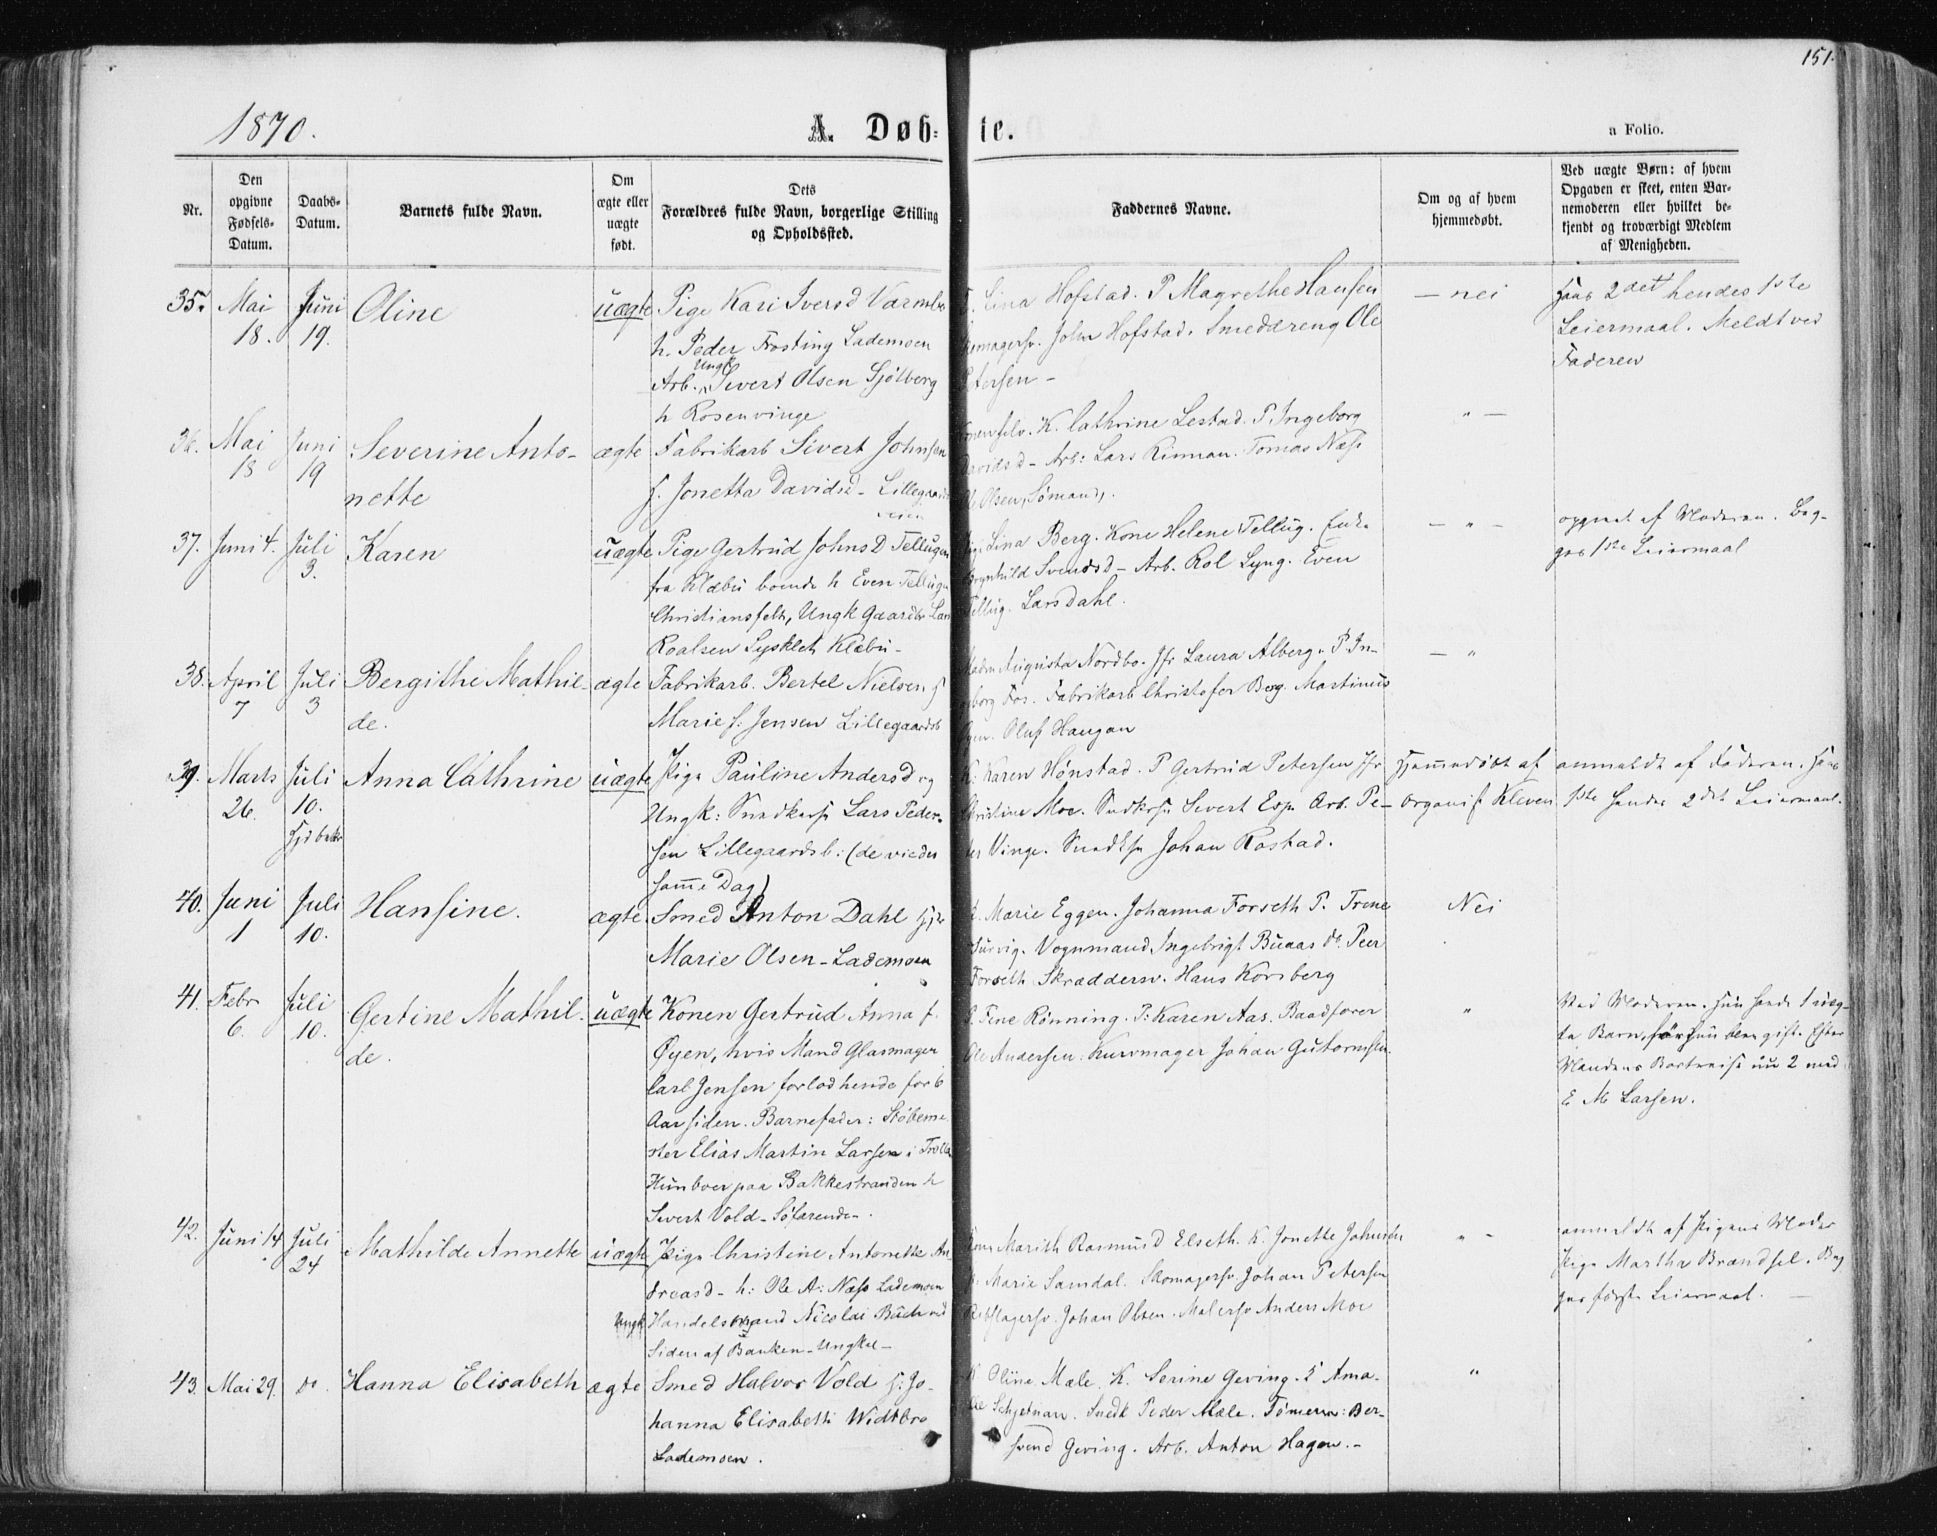 151.
1870.
A. Døb-
te.
a Folio.
Nr.
Den opgivne Fødsels-Datum.
Daabs-Datum.
Barnets fulde Navn.
Om ægte eller uægte født.
Dets Forældres fulde Navn, borgerlige Stilling og Opholdssted.
Faddernes Navne.
Om og af hvem hjemmedøbt.
Ved uægte Børn: af hvem Opgaven er skeet, enten Barnemoderen eller hvilket bekjendt og troværdigt Medlem af Menigheden.
35. Mai 18. Juni 19. Oline uægte
Pige Kari Iversd Varmbo
h. Peder Frosting Lademoen
Arb. Ungk Sivert Olsen Sjölberg
h Rosenvinge
Lina Hofstad. P Magrethe Hansen
John Hofstad. Smeddreng Ole
Petersen -
- nei
Hans 2det hendes 1ste
Leiermaal. Meldt ved
Faderen
36. Mai 18 Juni 19 Severine Anto-
nette
ægte
Fabrikarb Sivert Johnsen
f. Jonetta Davidsd - Lillegaards
K. Cathrine Lestad. P. Ingeborg
Davidsd - Arb: Lars Rinnan. Tomas Næss
Olsen, Sömand.
" -
37. Juni 4. Juli 3. Karen uægte
Pige Gertrud Johns D Tellugan
fra Klæbu boende h Even Tellugn
Christiansfelt, Ungk Gaardbr Lars
Roalsen Lysklet Klæbu -
Lina Berg. Kone Helene Tellug. Enke
Brynhild Svendsd - Arb. Rol Lyng. Even
Tellug. Lars Dahl.
- " -
opgivet af Moderen. Beg-
ges 1ste Leiermaal
38. April 7 Juli 3 Bergithe Mathil-
de.
ægte
Fabrikarb. Bertel Nielsen
Marie f: Jensen Lillegaardsb
Madm Augusta Nordbo. Jfr Laura Alberg. P In-
geborg Fos. Fabrikarb Christofer Berg. Martinus
Oluf Haugan
- "
39. Marts 26. Juli 10. Anna Cathrine uægte
Pige Pauline Anders D og
Ungk: Snedkersv Lars Peder-
sen Lillegaardsb: (de viedes
samme Dag)
K. Karen Hönstad. P Gertrud Petersen Jfr
Christine Moe. Snedkersv Sivert Esp. Arb. Pe-
der Vinge. Snedksv Johan Rostad.
Hjemmedöbt af
Organist Kleven
anmeldt af Faderen. Hans
1ste hendes 2det Leiermaal.
40. Juni 1 Juli 10. Hansine. ægte
Smed Anton Dahl
Marie Olsen - Lademoen
Marie Eggen. Johanna Forseth P. Trene
Vognmand Ingebrigt Buaas do Peer
Forseth Skræddersv. Hans Korsberg
Nei
41. Febr 6. Juli 10. Gertine Mathil-
de.
uægte
Konen Gertrud Anna f.
Øyen, hvis Mand Glasmager
Carl Jensen forlod hende for 6
Aar siden. Barnefader: Stöbeme-
ster Elias Martin Larsen i Trolla
Hun boer paa Bakkestranden h
Sivert Vold - Söfarende.
P. Tene Rönning. P: Karen Aas. Baadförer
Ole Andersen: Kurvmager Johan Gutormsen.
"
Ved Moderen. Hun havde 1 uæg-
te Barn, för hun blev gift. Efter
Mandens Bortreise nu 2 med
E M Larsen.
42. Juni 14 Juli 24 Mathilde Annette uægte
Pige Christine Antonette An-
dreasd - h: Ole A: Næss Lademoen
Ungk Handelsmand Nicolai Buch ved
Siden af Banken - Ungkel -
Kone Marith Rasmus D Elseth. K. Jonette Johnsen
Marie Samdal. Skomagersv. Johan Petersen
Johan Olsen. Malersv Anders Moe
" -
anmeldt af Pigens Moder
Pige Martha Brændsel. Beg
ges förste Leiermaal. -
43. Mai 29. do. Hanna Elisabeth ægte
Smed Halvor Vold f: Jo-
hanna Elisabeth Widtbro
Lademoen.
K Oline Mæle. K. Serine Geving. F Ama-
lie Schjetnan. Snedk Peder Mæle. Tömerm: Ber-
svend Geving. Arb. Anton Hagen. -
"